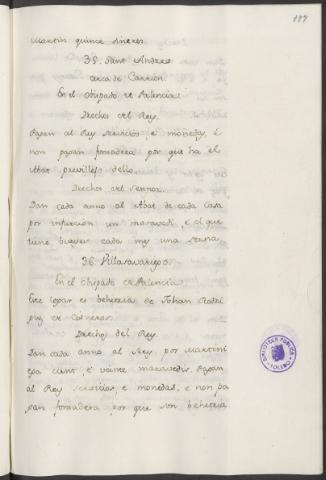 117
Martin quince dineros.
35. Sant Andres
cerca de Carrion
En el Obispado de Palencia.
Drechos del Rey.
Pagan al Rey servicios e monedas, e
non pagan fonsadera por que ha el
Abat previllejo dello.
Drechos del sennor.
Dan cada anno al Abat de cada Casa
por infurcion un maravedi, e el que
tiene bueyes cada mes una serna.
36. Villasavariego.
En el Obispado de Palencia.
Este logar es behetria de Johan Rodri
guez de Cisneros.
Drechos del Rey.
Dan cada anno al Rey por Martini
ega cient e veinte maravedis. Pagan
al Rey servicios, e monedas, e non pa
gan fonsadera por que son behetria.
BIBLIOTECA PUBLICA
TOLEDO